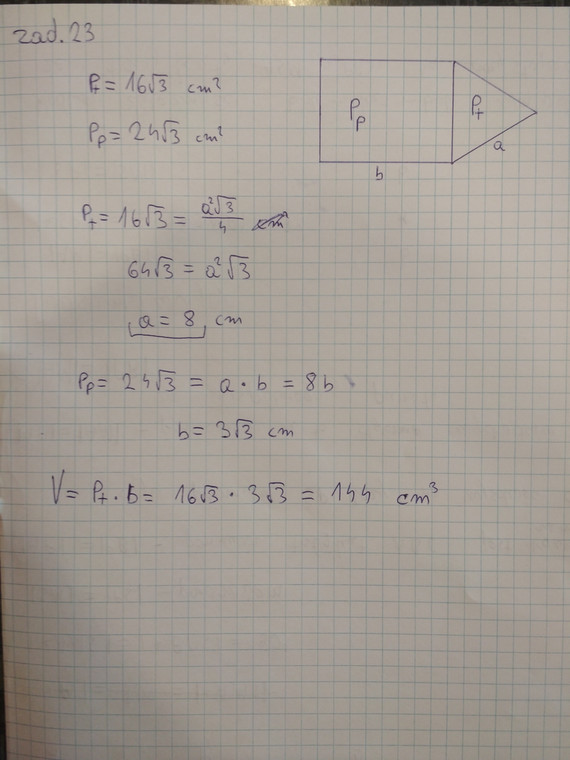 zad. 23
P_t = 16√3 cm²
P_p = 24√3 cm²
P_p
P_t
a
b
P_t = 16√3 = a²√3/4
64√3 = a²√3
a = 8 cm
P_p = 24√3 = a · b = 8b
b = 3√3 cm
V = P_t · b = 16√3 · 3√3 = 144 cm³